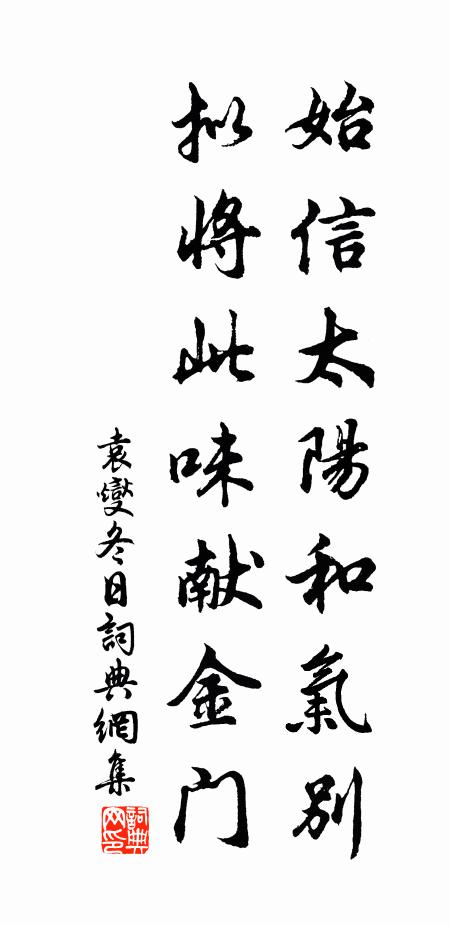 始信太陽和氣別
拟將此味献金门
袁燮冬日詞典網集
詞典
网印